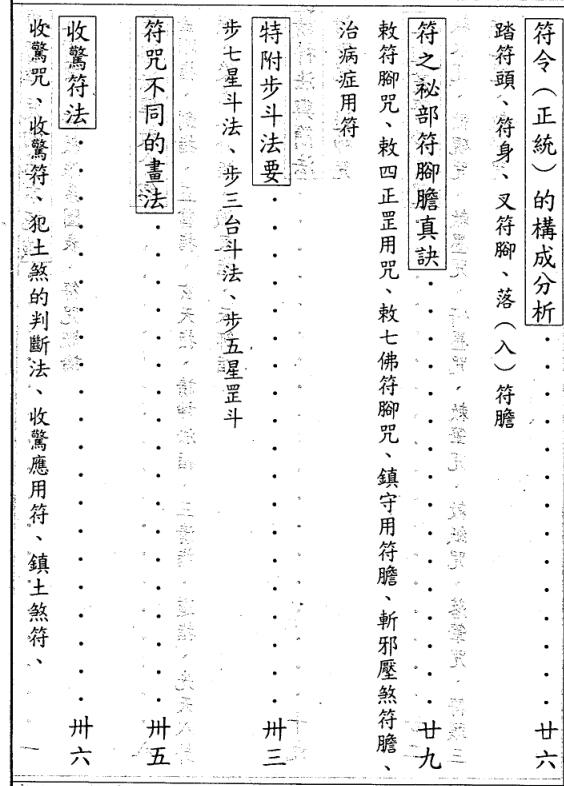 符令（正統）的構成分析．．．．．．．．．．．．．．廿六
踏符頭、符身、叉符腳、落（入）符膽
符之祕部符腳膽真訣．．．．．．．．．．．．．．．．廿九
敕符腳咒、敕四正罡用咒、敕七佛符腳咒、鎮守用符膽、斬邪壓煞符膽、
治病症用符
特附步斗法要．．．．．．．．．．．．．．．．．．．卅三
步七星斗法、步三台斗法、步五星罡斗
符咒不同的畫法．．．．．．．．．．．．．．．．．．卅五
收驚符法．．．．．．．．．．．．．．．．．．．．．卅六
收驚咒、收驚符、犯土煞的判斷法、收驚應用符、鎮土煞符、